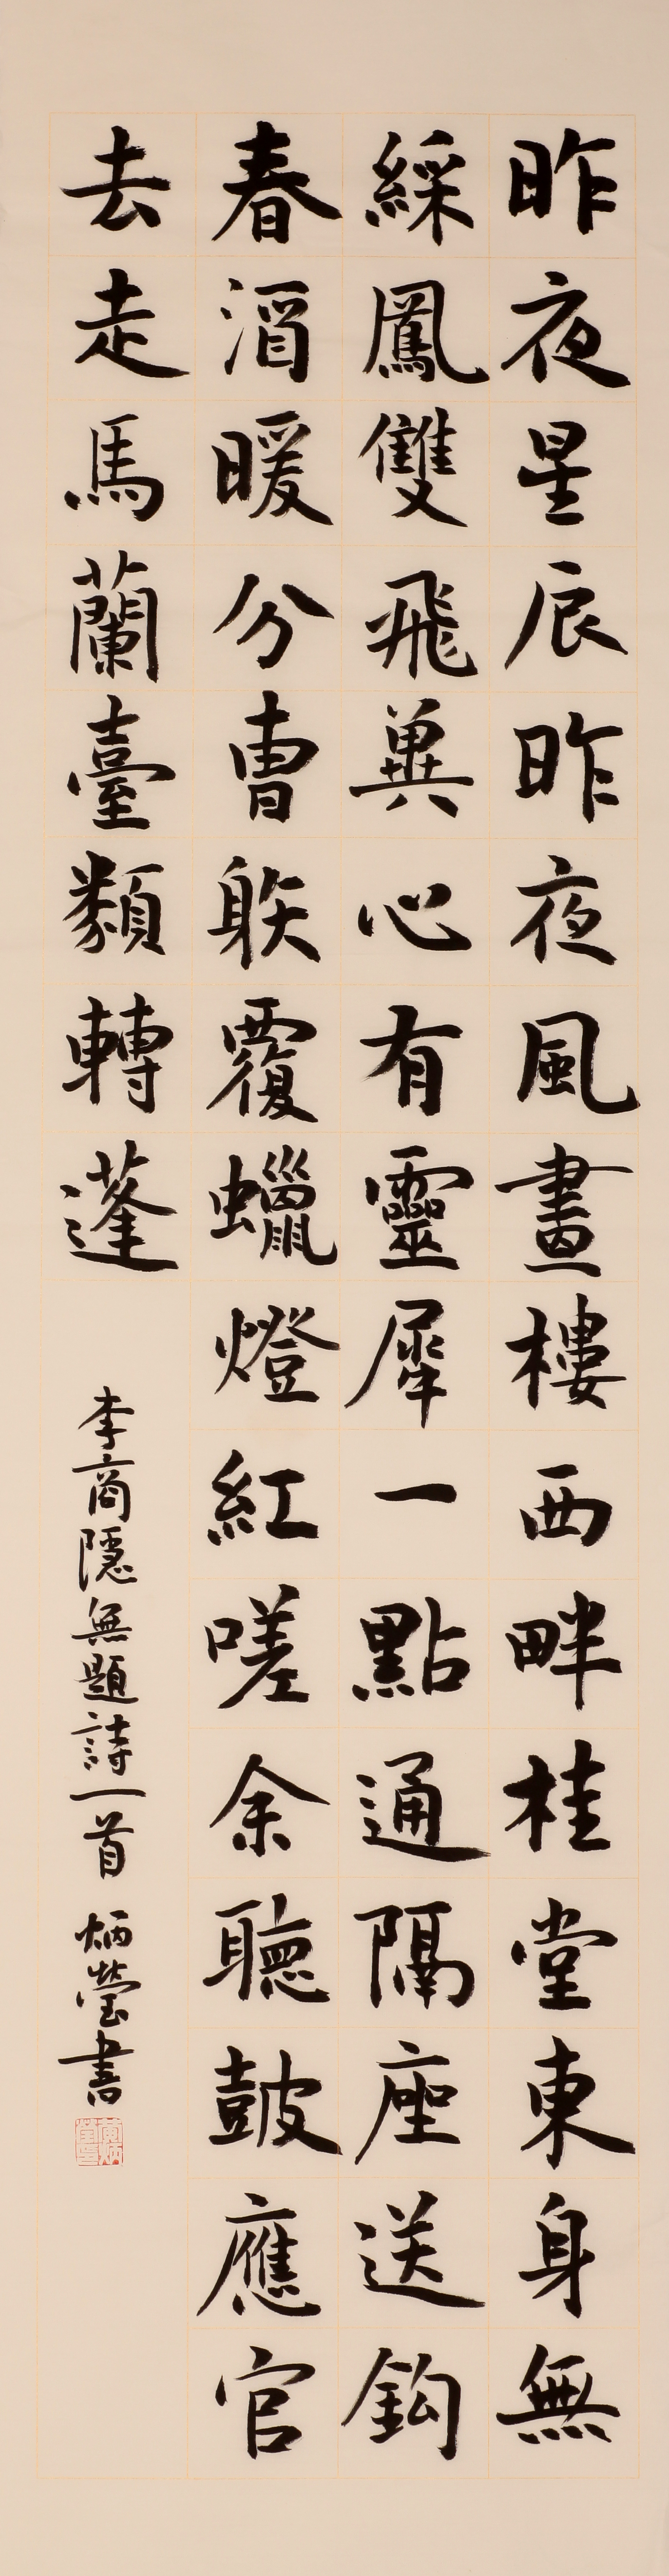 昨夜星辰昨夜風畫樓西畔桂堂東身無
綵鳳雙飛翼心有靈犀一點通隔座送鈎
春酒暖分曹躲覆蠟燈紅嗟余聽鼓應官
去走馬蘭臺類轉蓬
李商隱無題詩一首 炳瑩書
黃炳瑩印